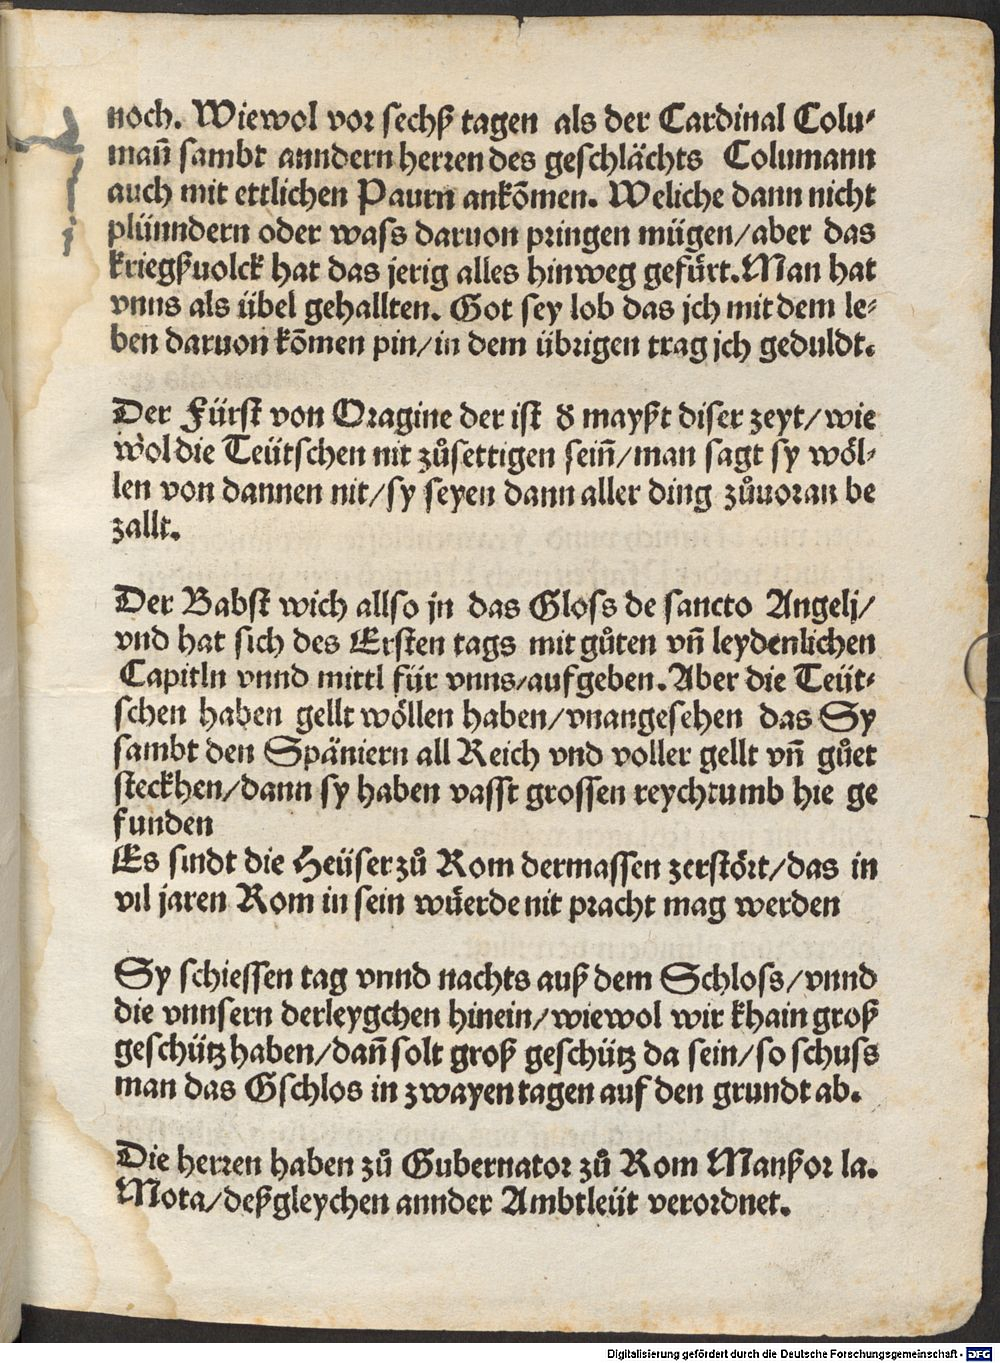 noch. Wiewol vor sechß tagen als der Cardinal Colu⸗
mañ sambt anndern herren des geschlächts Columann
auch mit ettlichen Paurn ankõmen. Weliche dann nicht
plünndern oder wass daruon pringen mügen/aber das
kriegßuolck hat das jerig alles hinweg gefürt. Man hat
vnns als übel gehallten. Got sey lob das jch mit dem le⸗
ben daruon kõmen pin/in dem übrigen trag jch geduldt.
Der Fürst von Oragine der ist d̕ mayßt diser zeyt/wie
wol die Teütschen nit zůsettigen seiñ/man sagt sy wöl⸗
len von dannen nit/sy seyen dann aller ding zůuoran be
zallt.
Der Babst wich allso jn das Gloss de sancto Angelj/
vnd hat sich des Ersten tags mit gůten vñ leydenlichen
Capitln vnnd mittl für vnns/aufgeben. Aber die Teüt⸗
schen haben gellt wöllen haben/vnangesehen das Sy
sambt den Späniern all Reich vnd voller gellt vñ gůet
steckhen/dann sy haben vasst grossen reychtumb hie ge
funden
Es sindt die Heüser zů Rom dermassen zerstört/das in
vil jaren Rom in sein wüerde nit pracht mag werden
Sy schiessen tag vnnd nachts auß dem Schloss/vnnd
die vnnsern derleygchen hinein/wiewol wir khain groß
geschütz haben/dañ solt groß geschütz da sein/so schuss
man das Gschlos in zwayen tagen auf den grundt ab.
Die herren haben zů Gubernator zů Rom Manßor la.
Mota/deßgleychen annder Ambtleüt verordnet.
Digitalisierung gefördert durch die Deutsche Forschungsgemeinschaft - DFG